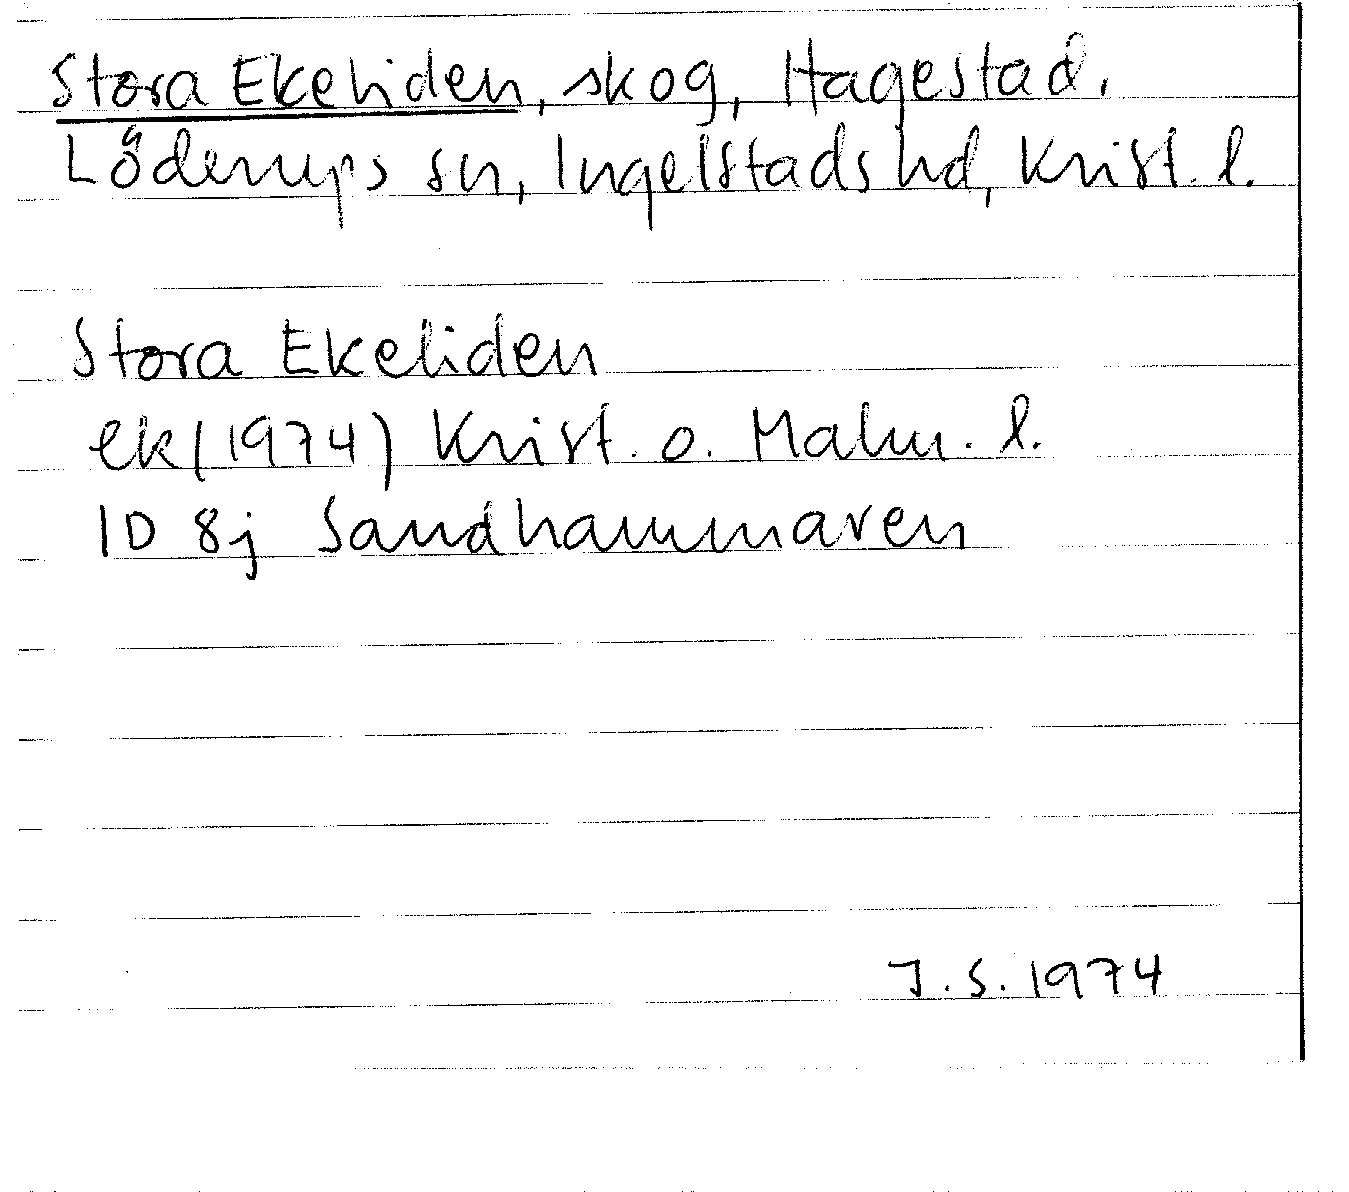 Stora Ekeliden, skog, Hagestad,
Löderups sn, Ingelstads hd, Krist. l.
Stora Ekeliden
ek (1974) Krist. o. Malm. l.
1D 8j Sandhammaren
J.S. 1974